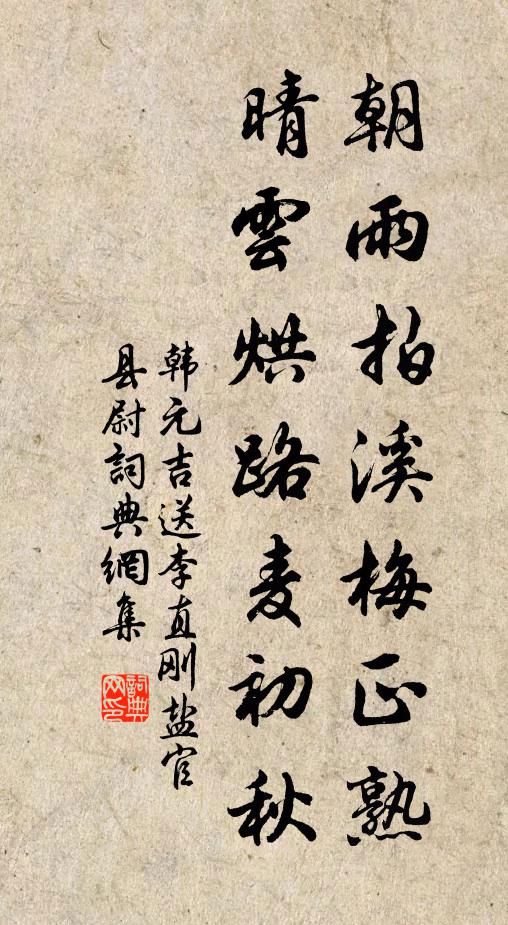 朝雨拍溪梅正熟
晴雲烘路麦初秋
韩元吉送李直刚盐官
县尉詞典網集
詞典网印